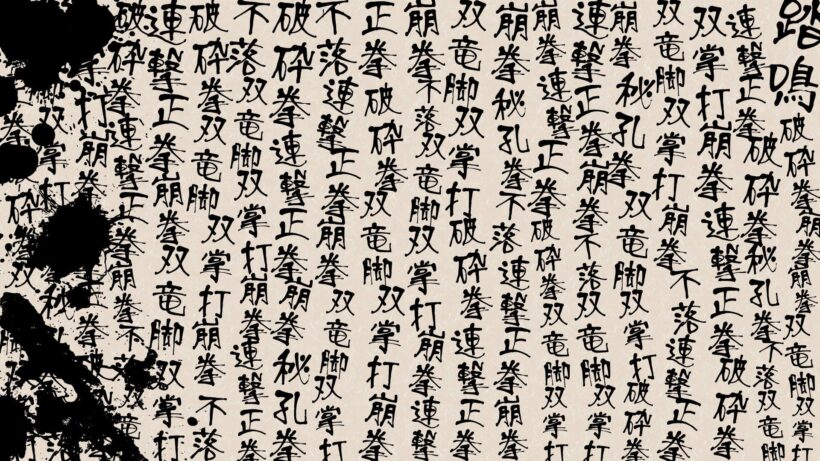 踏鳴
破砕拳崩拳崩拳双竜脚双掌
連撃正拳破砕拳秘孔拳不落双竜脚
双掌打崩拳連撃正拳破砕拳
双竜脚双掌打崩拳不落連撃正拳
崩拳秘孔拳双竜脚双掌打破砕拳
連撃正拳崩拳不落双竜脚双掌打
崩拳連撃正拳破砕拳双竜脚双掌打
崩拳秘孔拳不落連撃正拳崩拳
双竜脚双掌打破砕拳連撃正拳
崩拳不落双竜脚双掌打崩拳連撃
正拳破砕拳双竜脚双掌打崩拳
不落連撃正拳崩拳双竜脚双掌打
破砕拳連撃正拳崩拳秘孔拳
不落双竜脚双掌打崩拳連撃正拳
破砕拳双竜脚双掌打崩拳不落
連撃正拳崩拳双竜脚双掌打
破砕拳連撃正拳崩拳不落
打崩拳
双掌打
砕拳